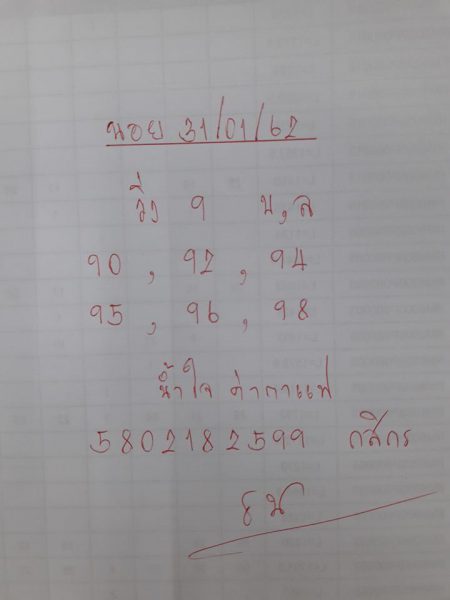 นอย 31/01/62
วิ่ง 9 บ,ล
90 , 92 , 94
95 , 96 , 98
น้ำใจ ค่ากาแฟ
5802182599 กสิกร
ธน